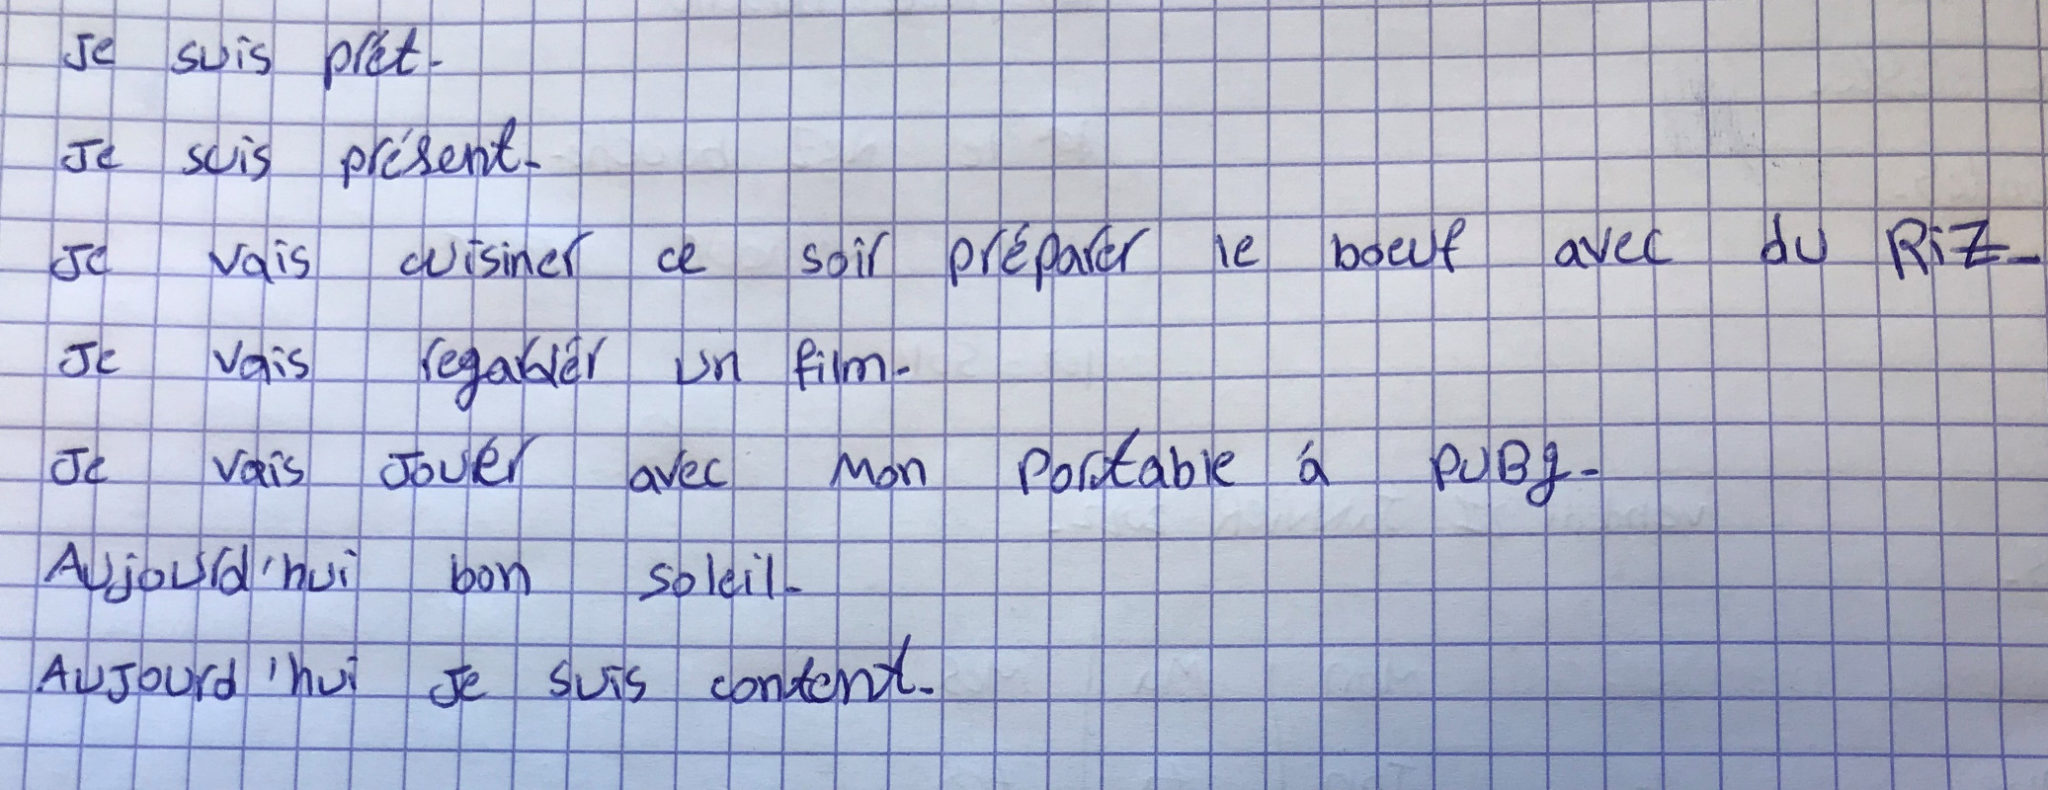 Je suis prêt.
Je suis présent.
Je vais cuisiner ce soir préparer le boeuf avec du RiZ.
Je vais regarder un film.
Je vais Jouer avec Mon Portable à PUBg.
Aujourd'hui bon soleil.
AuJourd'hui Je suis content.